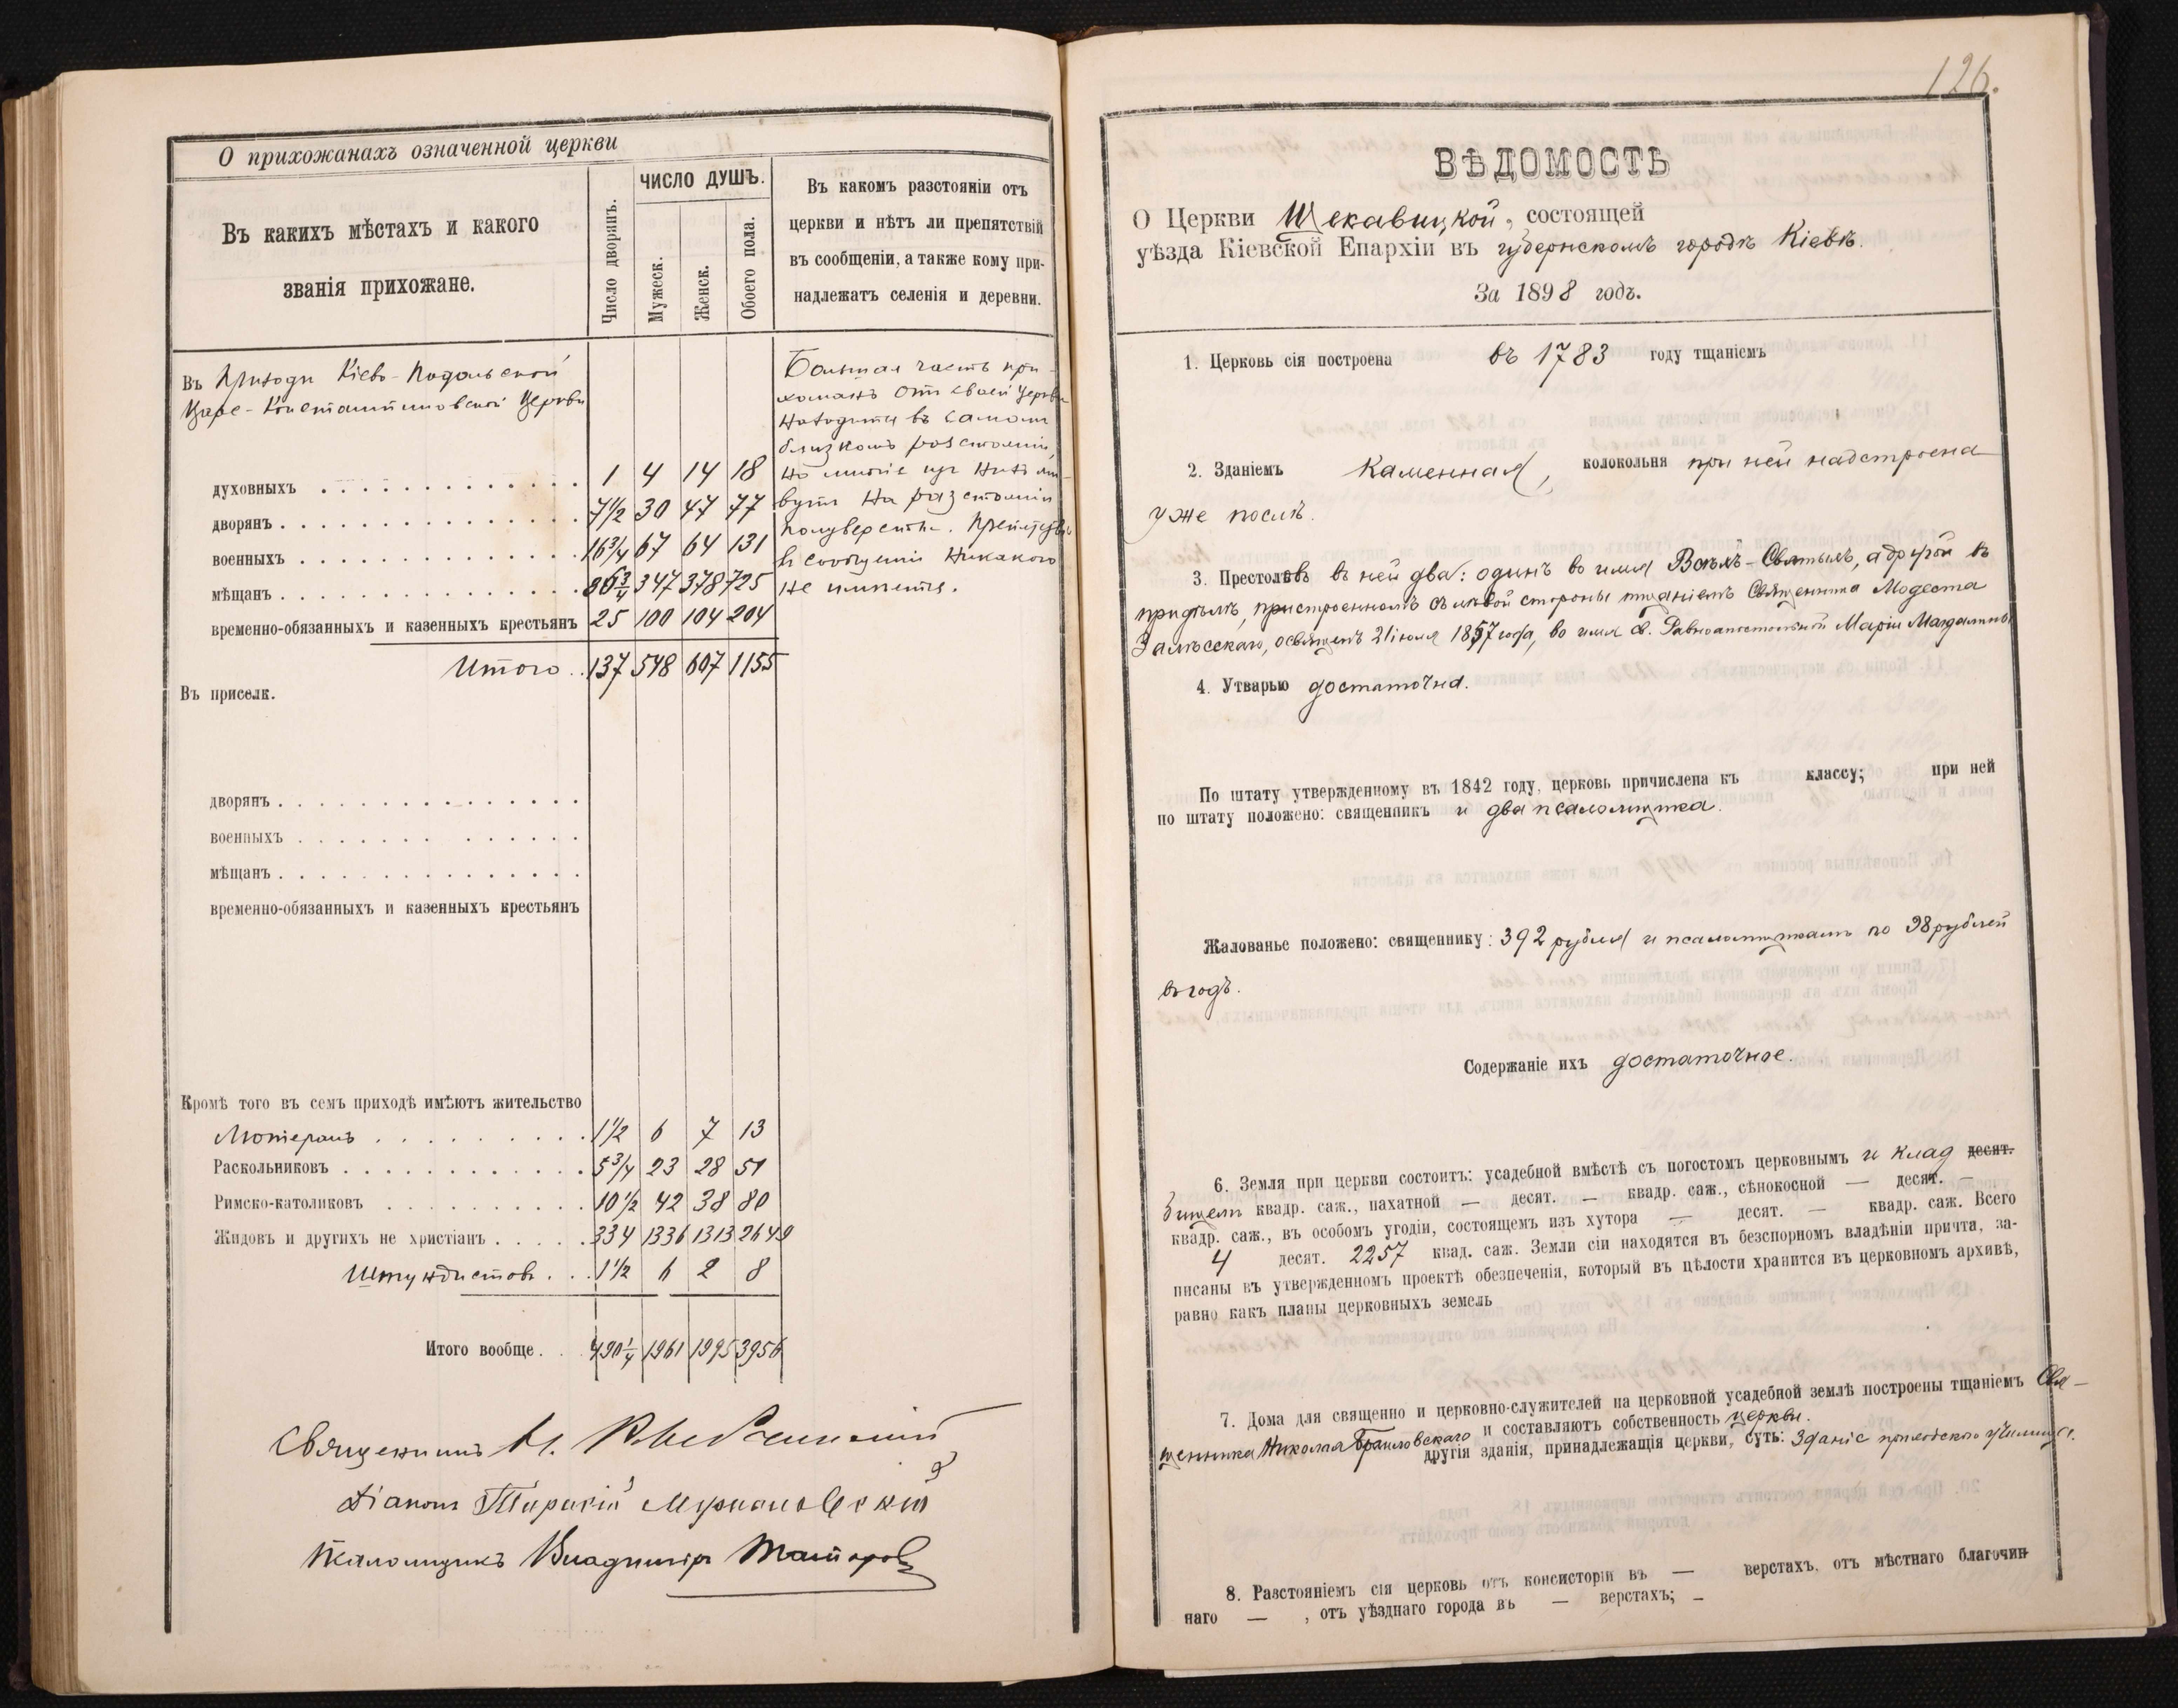 О прихожанахъ означенной церкви
Въ какихъ мѣстахъ и какого
званія прихожане.
Число дворянъ.
ЧИСЛО ДУШЪ.
Мужеск.
Женск.
Обоего пола.
Въ какомъ разстояніи отъ
церкви и нѣтъ ли препятствій
въ сообщеніи, а также кому при-
надлежатъ селенія и деревни.
Въ Приходи Кіево-Подольской
Царе-Константиновской Церкви
духовныхъ 1 4 14 18
дворянъ 7 1/2 30 47 77
военныхъ 16 3/4 67 64 131
мѣщанъ 86 3/4 347 378 725
временно-обязанныхъ и казенныхъ крестьянъ 25 100 104 204
Итого 137 548 607 1155
Большая часть при-
хожанъ отъ своей Церкви
находится въ самомъ
близкомъ разстояніи,
но многіе изъ нихъ жи-
вутъ на разстояніи
полуверсты. Препятствія
въ сообщеніи никакого
не имѣется.
Въ приселк.
дворянъ
военныхъ
мѣщанъ
временно-обязанныхъ и казенныхъ крестьянъ
Кромѣ того въ семъ приходѣ имѣютъ жительство
Лютеранъ 1 1/2 6 7 13
Раскольниковъ 5 3/4 23 28 51
Римско-католиковъ 10 1/2 42 38 80
Жидовъ и другихъ не христіанъ 334 1336 1313 2649
Штундистовъ 1 1/2 6 2 8
Итого вообще 490 1/4 1961 1995 3956
Священникъ
Діаконъ
Псаломщикъ Владиміръ
126.
ВѢДОМОСТЬ
О Церкви Щекавицкой, состоящей
уѣзда Кіевской Епархіи въ губернскомъ городѣ Кіевѣ.
За 1898 годъ.
1. Церковь сія построена въ 1783 году тщаніемъ
2. Зданіемъ Каменная, колокольня при ней надстроена
уже послѣ.
3. Престоловъ въ ней два: одинъ во имя Всѣхъ-Святыхъ, а другой въ
придѣлѣ, пристроенномъ съ лѣвой стороны тщаніемъ Священника Модеста
Залѣсскаго, освященъ 21 іюля 1857 года, во имя св. Равноапостольной Маріи Магдалины
4. Утварью достаточна.
По штату утвержденному въ 1842 году, церковь причислена къ классу; при ней
по штату положено: священникъ и два псаломщика.
Жалованье положено: священнику: 392 рубля и псаломщикамъ по 98 рублей
въ годъ.
Содержаніе ихъ достаточное.
6. Земля при церкви состоитъ: усадебной вмѣстѣ съ погостомъ церковнымъ и клад десят.
бищемъ квадр. саж., пахатной — десят. — квадр. саж., сѣнокосной — десят. —
квадр. саж., въ особомъ угодіи, состоящемъ изъ хутора — десят. — квадр. саж. Всего
4 десят. 2257 квад. саж. Земли сіи находятся въ безспорномъ владѣніи причта, за-
писаны въ утвержденномъ проектѣ обезпеченія, который въ цѣлости хранится въ церковномъ архивѣ,
равно какъ планы церковныхъ земель
7. Дома для священно и церковно-служителей на церковной усадебной землѣ построены тщаніемъ Свя-
щенника Николая Браиловскаго и составляютъ собственность церкви.
другія зданія, принадлежащія церкви, суть: Зданіе приходского училища.
8. Разстояніемъ сія церковь отъ консисторіи въ — верстахъ, отъ мѣстнаго благочин-
наго — , отъ уѣзднаго города въ — верстахъ; —